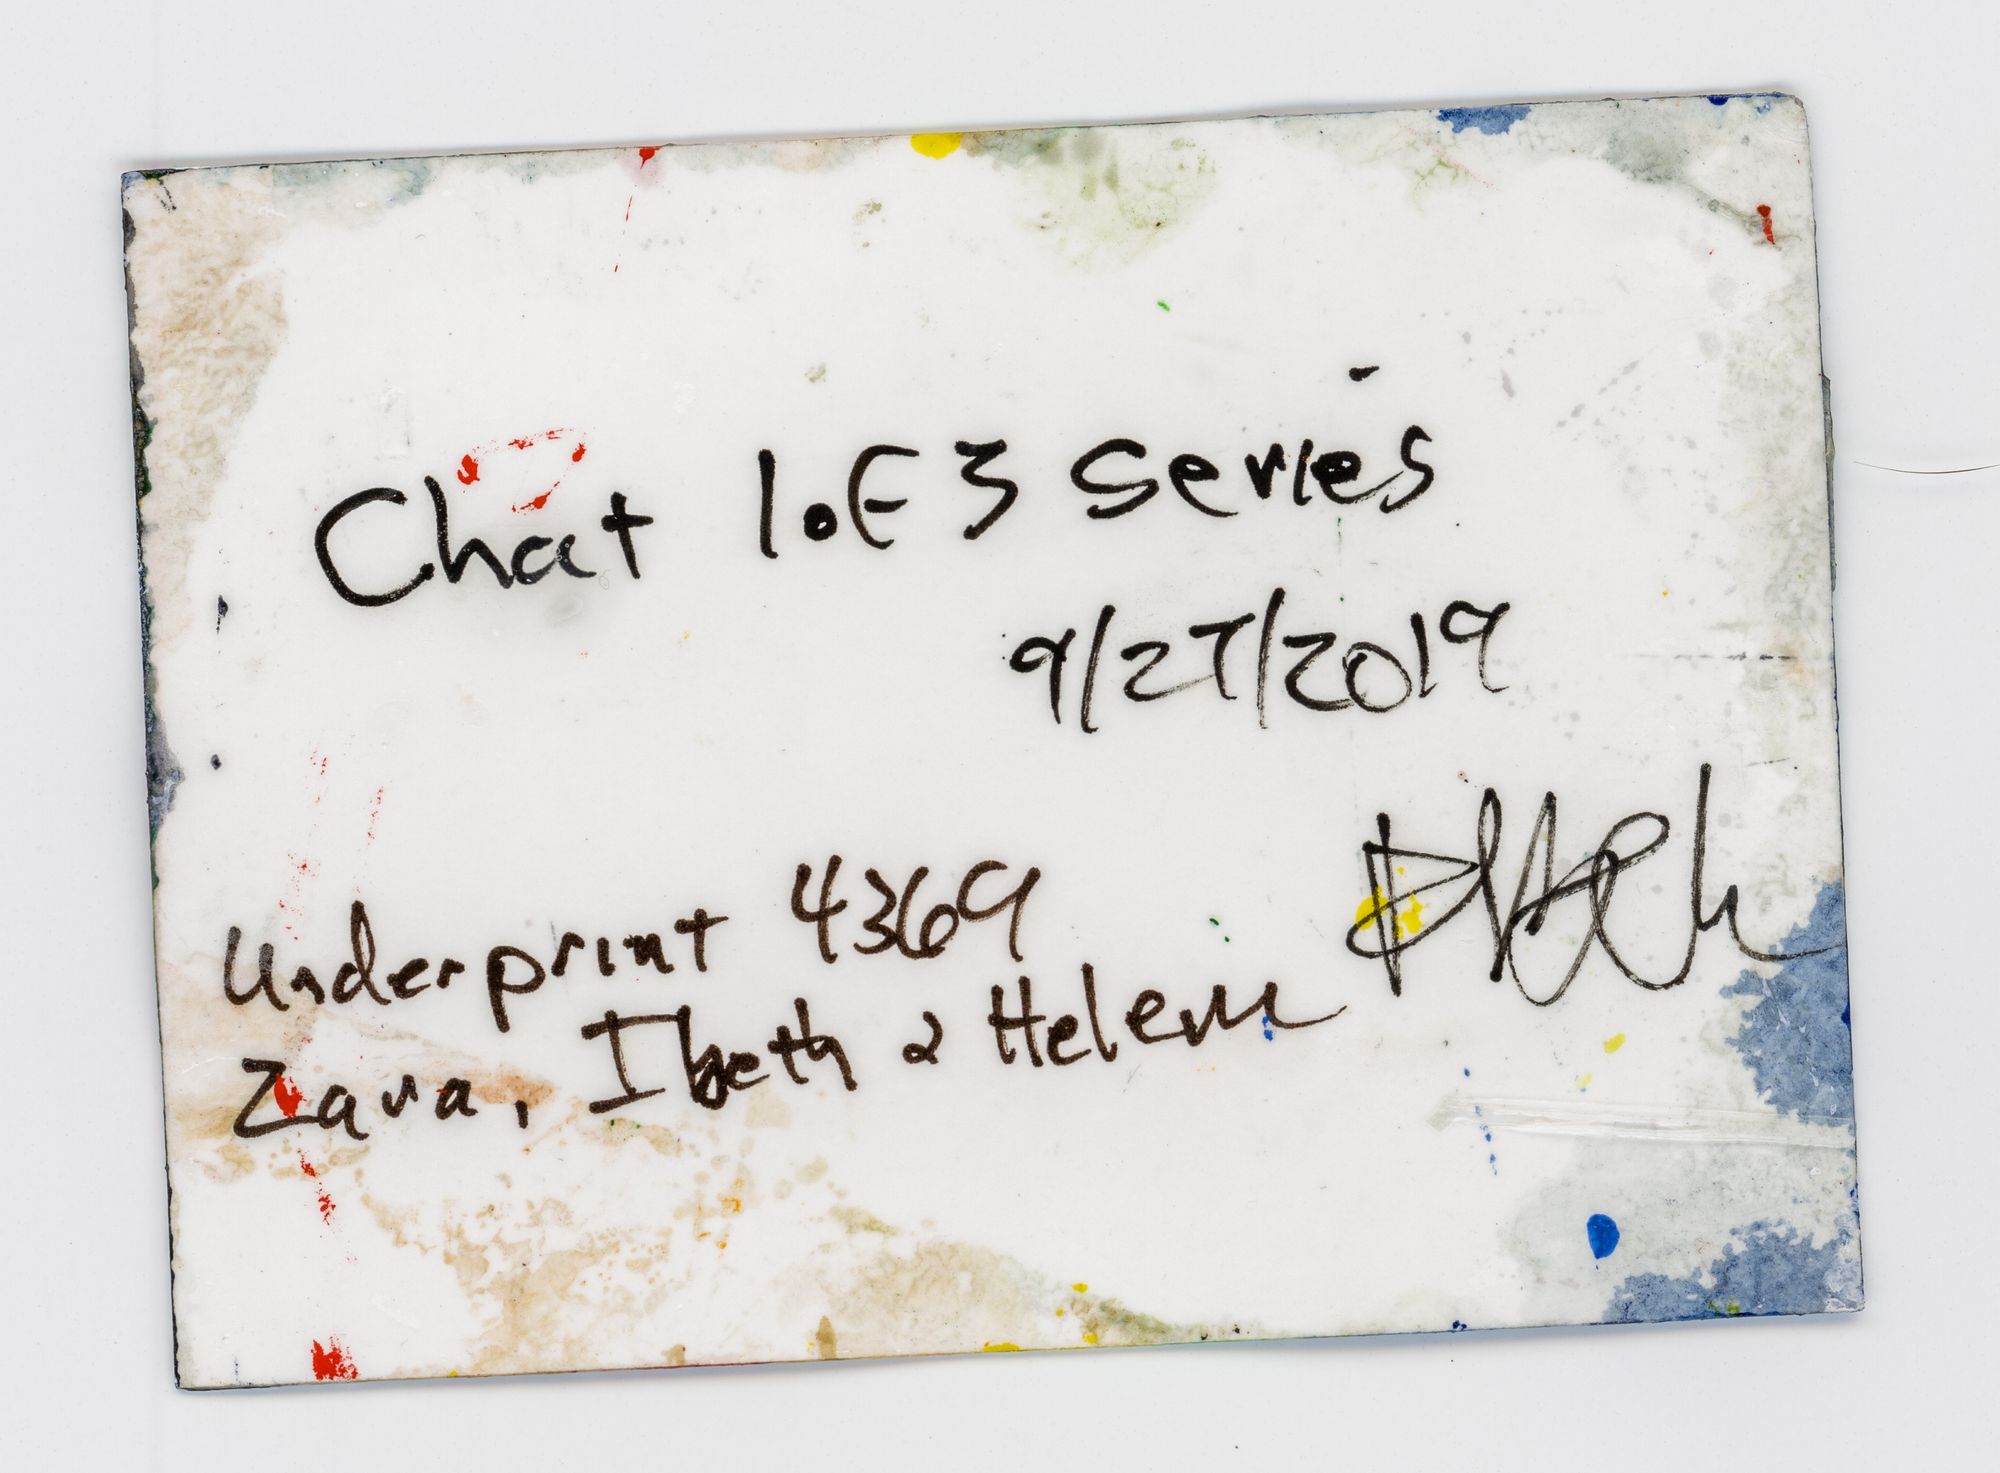 Chat 1.E3 series
9/27/2019
Underprint 4369
Zara, Ibeth & Helena